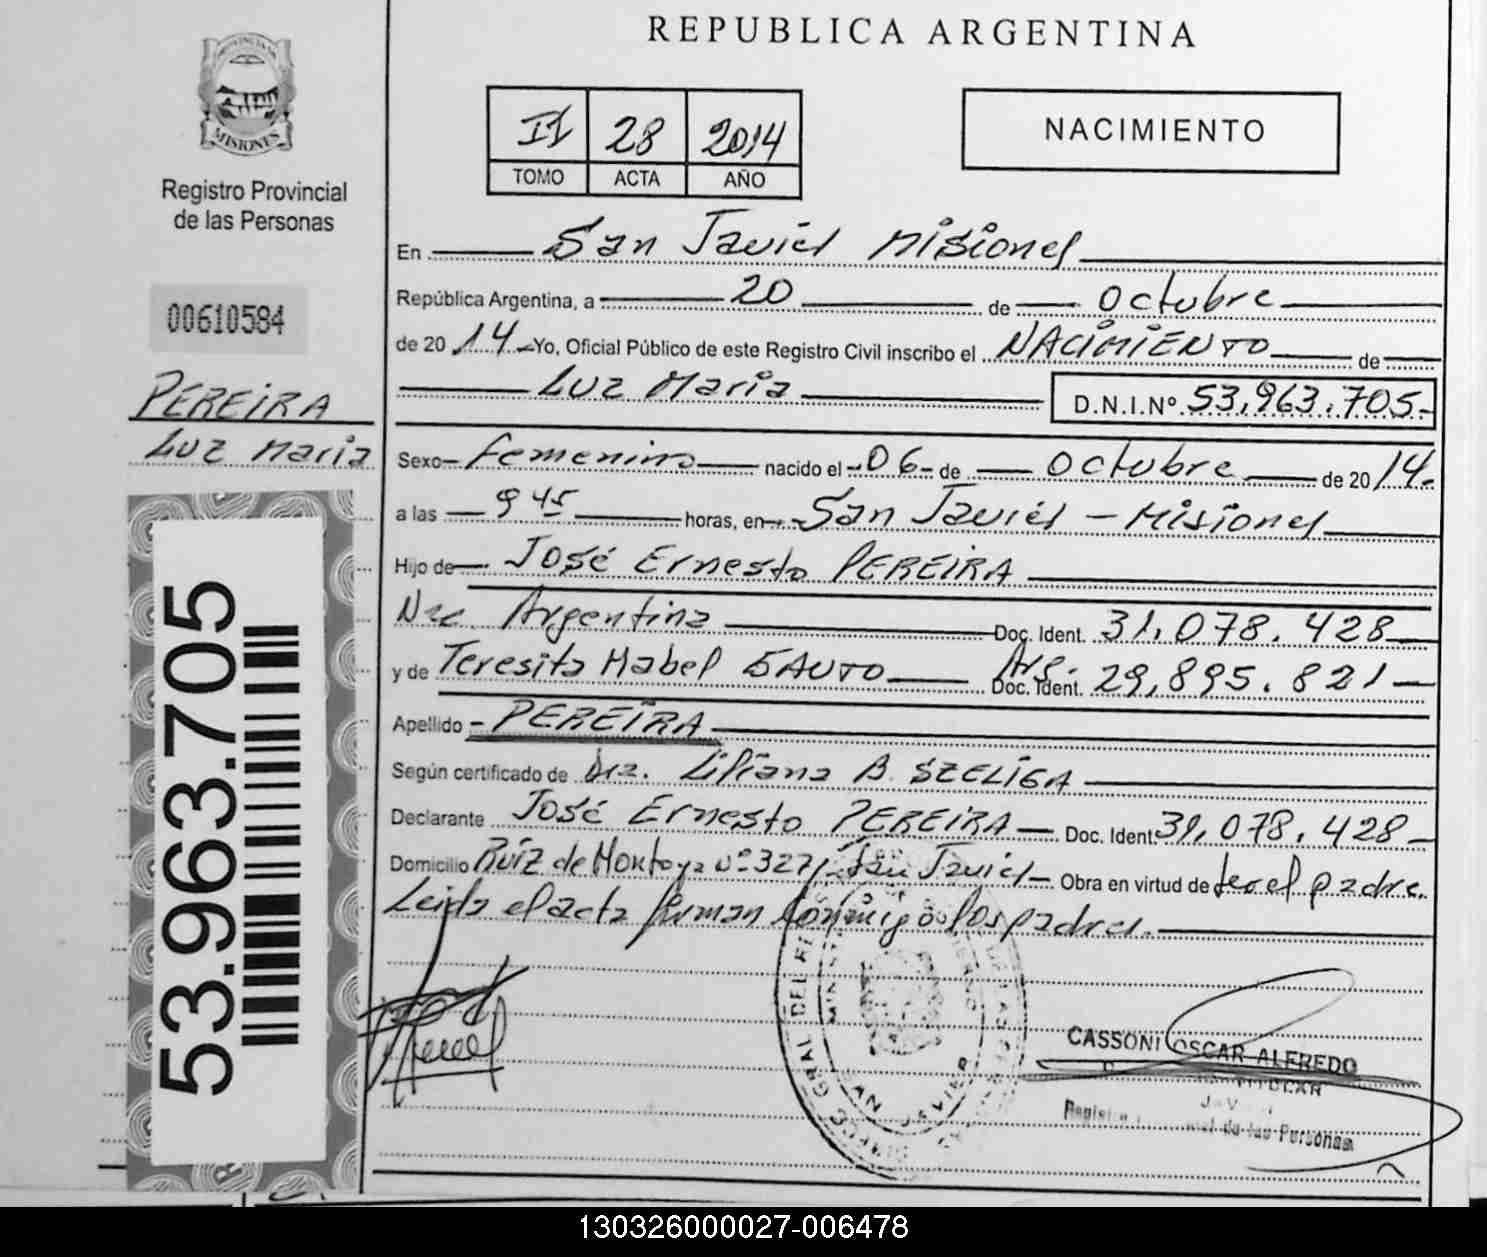 REPUBLICA ARGENTINA
MISIONES
Registro Provincial
de las Personas
II 28 2014
TOMO ACTA AÑO
NACIMIENTO
00610584
PEREIRA
Luz Maria
53.963.705
En San Javier Misiones
República Argentina, a 20 de Octubre
de 2014 Yo, Oficial Público de este Registro Civil inscribo el NACIMIENTO de
Luz Maria D.N.I.Nº 53.963.705-
Sexo Femenino nacido el 06 de Octubre de 2014.
a las 9 45 horas, en San Javier - Misiones
Hijo de José Ernesto PEREIRA
Nac. Argentina Doc. Ident. 31.078.428
y de Teresita Mabel SAUTO Arg. Doc. Ident. 29.895.821
Apellido - PEREIRA
Según certificado de Dra. Liliana B. SZELIGA
Declarante José Ernesto PEREIRA Doc. Ident. 31.078.428
Domicilio Ruiz de Montoya Nº 327, San Javier Obra en virtud de ser el padre.
Leida el acta firman conmigo los padres.
SAN JAVIER
CASSONI OSCAR ALFREDO
TITULAR
de las Personas
130326000027-006478